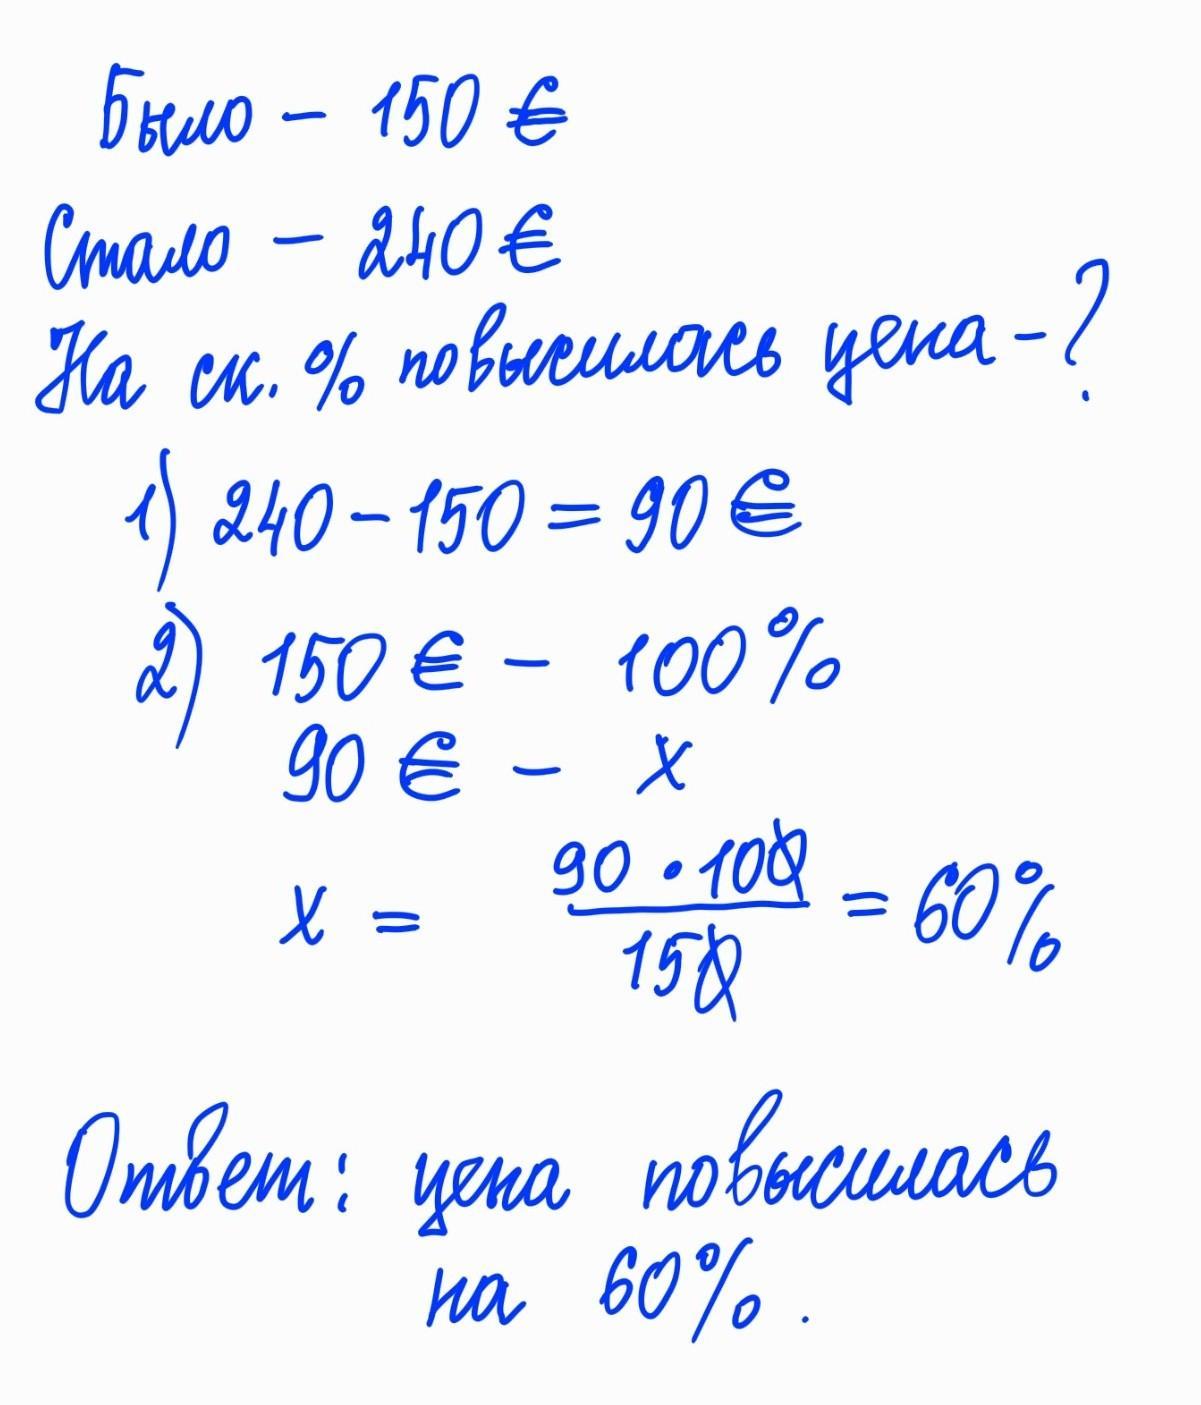 Было – 150 €
Стало – 240 €
На ск. % повысилась цена – ?
1) 240 – 150 = 90 €
2) 150 € – 100 %
90 € – x
x = 90 · 100 / 150 = 60 %
Ответ: цена повысилась
на 60 %.